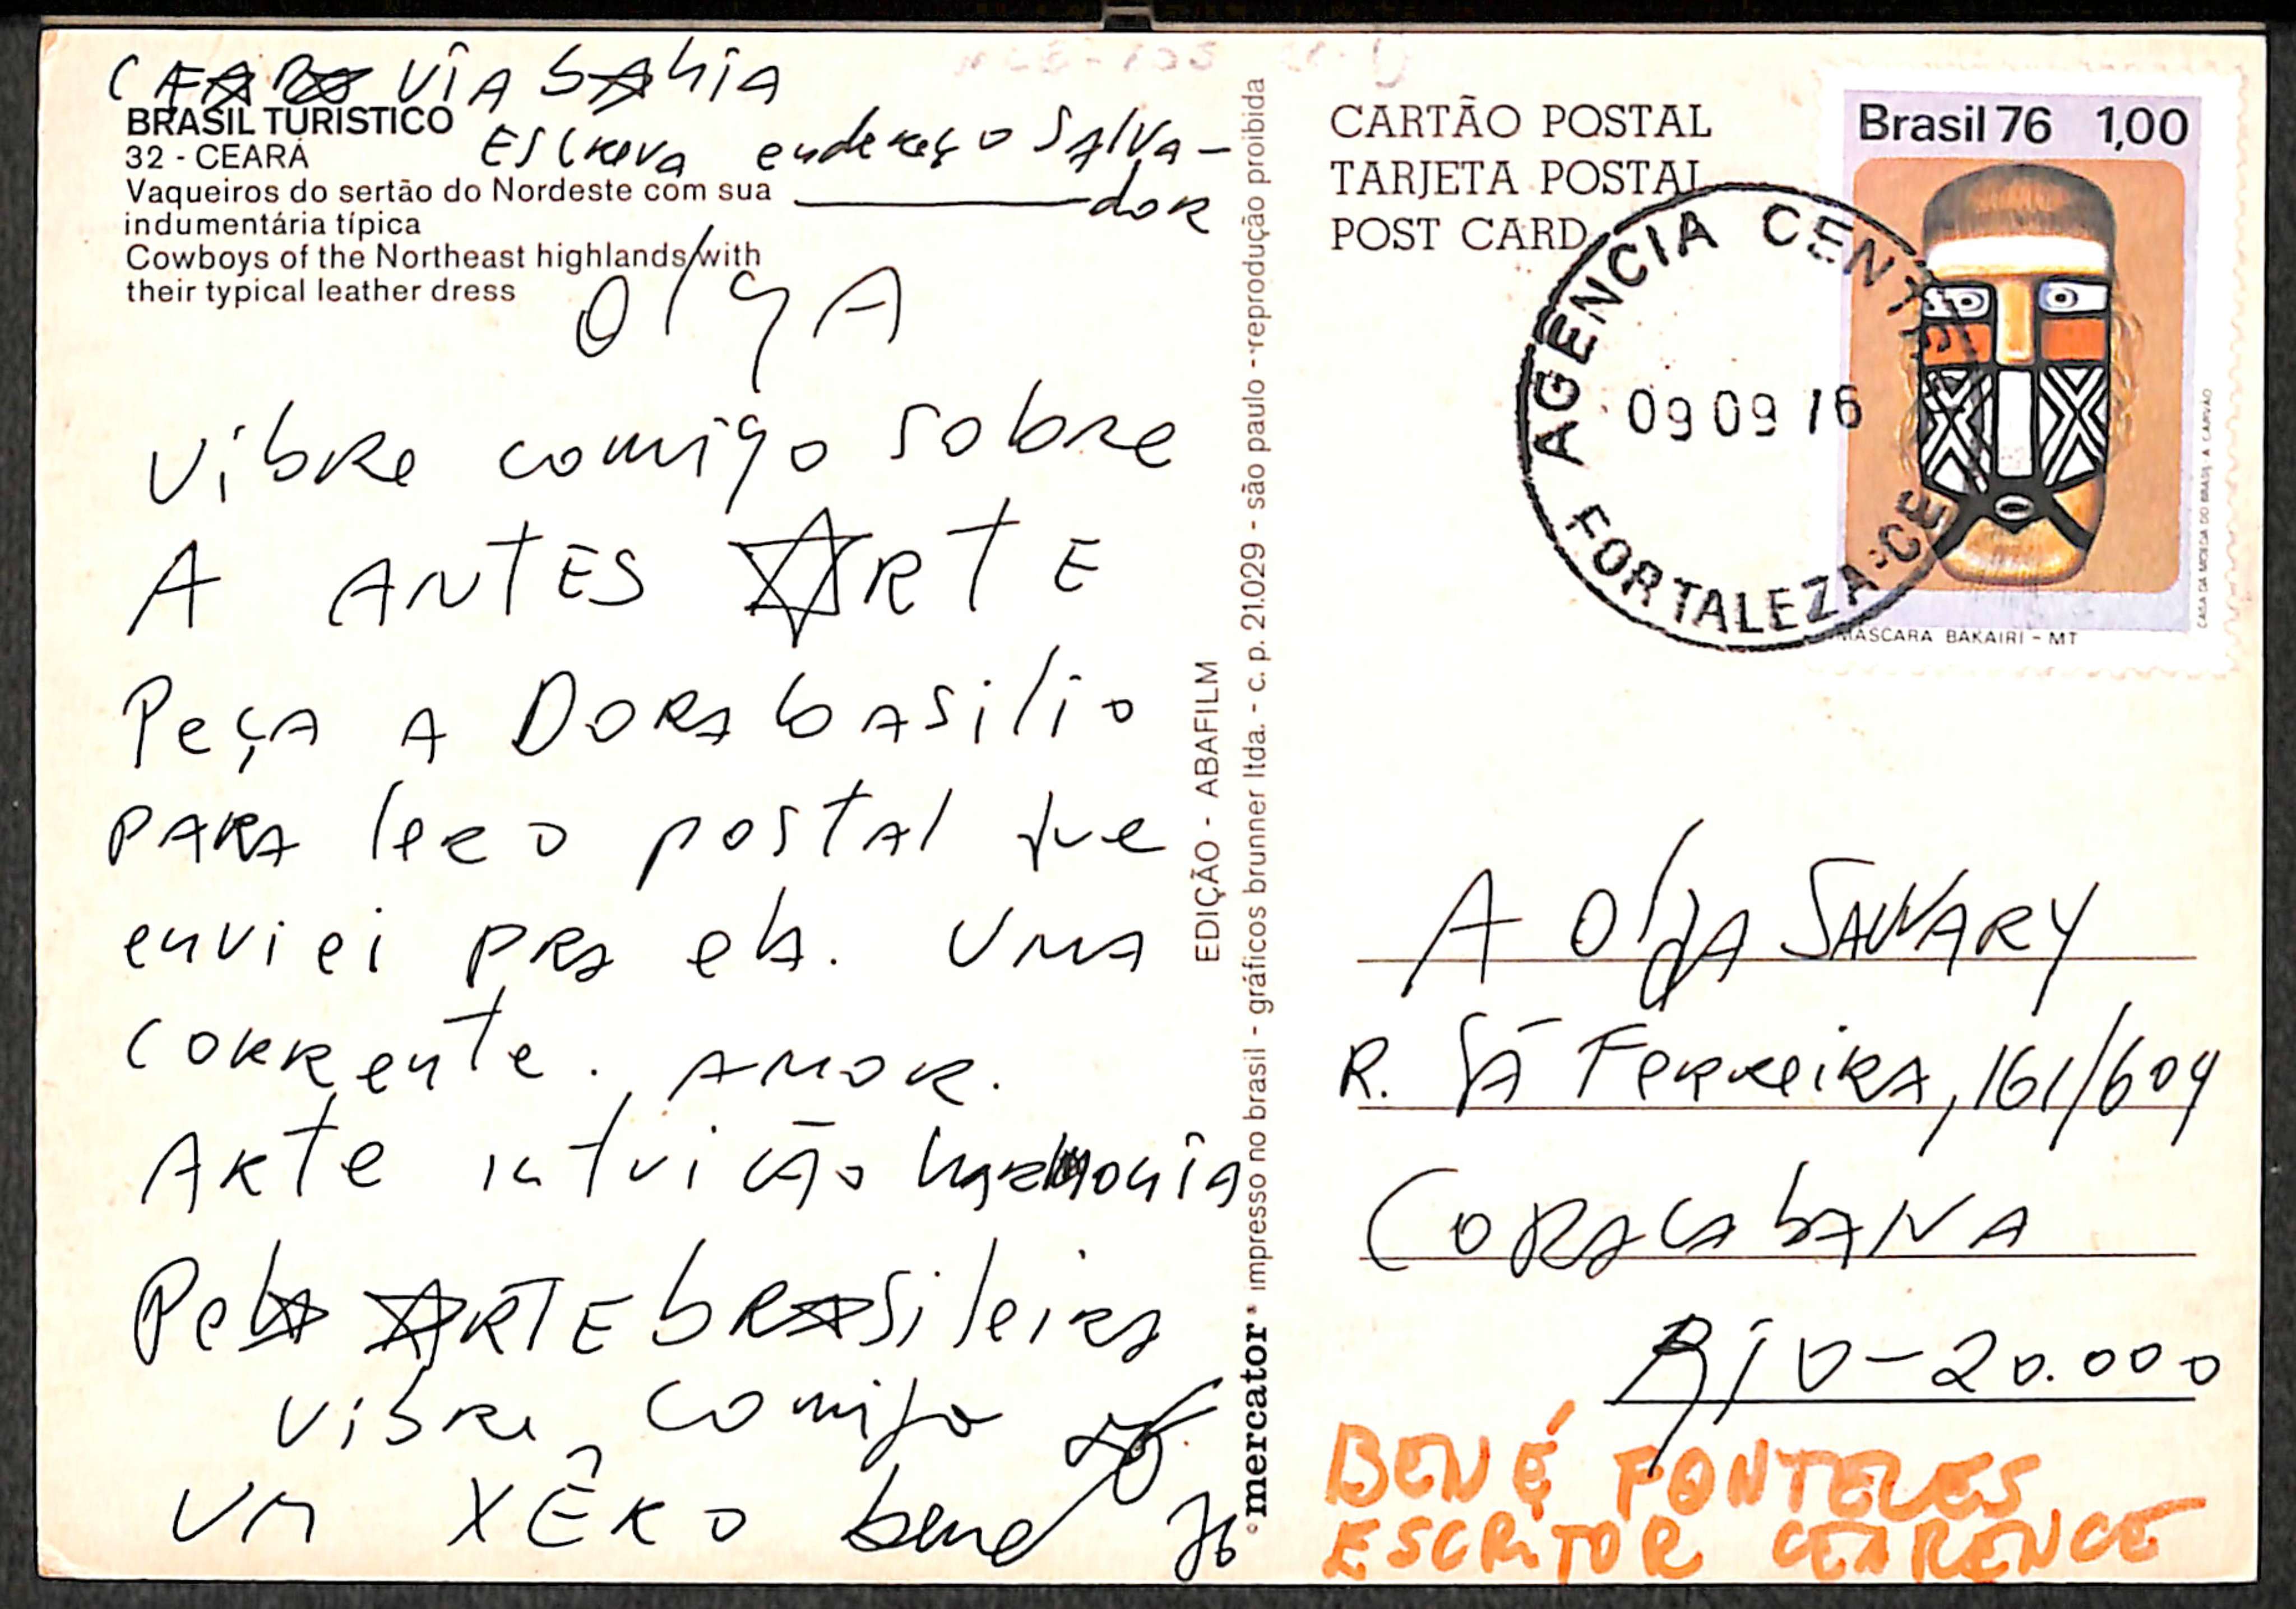 CEARA VIA bAhIA
BRASIL TURÍSTICO
32 - CEARÁ
Vaqueiros do sertão do Nordeste com sua
indumentária típica
Cowboys of the Northeast highlands with
their typical leather dress
EScReva endereço SAlVA-
dor
OlgA
Vibre comigo sobre
A ANTES ARTE
PeçA A DORA bASilio
PARA ler o postAl que
enviei pRA elA. UMA
CORRente. AMOR.
ARte intuição harmonia
PelA ARTE bRASileirA
Vibre comigo
UM XÊRO bené 76
EDIÇÃO - ABAFILM
mercator impresso no brasil - gráficos brunner ltda. - c. p. 21.029 - são paulo - reprodução proibida
CARTÃO POSTAL
TARJETA POSTAL
POST CARD
Brasil 76 1,00
MÁSCARA BAKAIRI - MT
CASA DA MOEDA DO BRASIL
AGENCIA CENTRAL
09 09 76
FORTALEZA-CE
A OlgA SAVVARY
R. SÁ FeRReiRA, 161/609
COPACAbANA
RiO - 20.000
BENÉ FONTELES
ESCRITOR CEARENCE